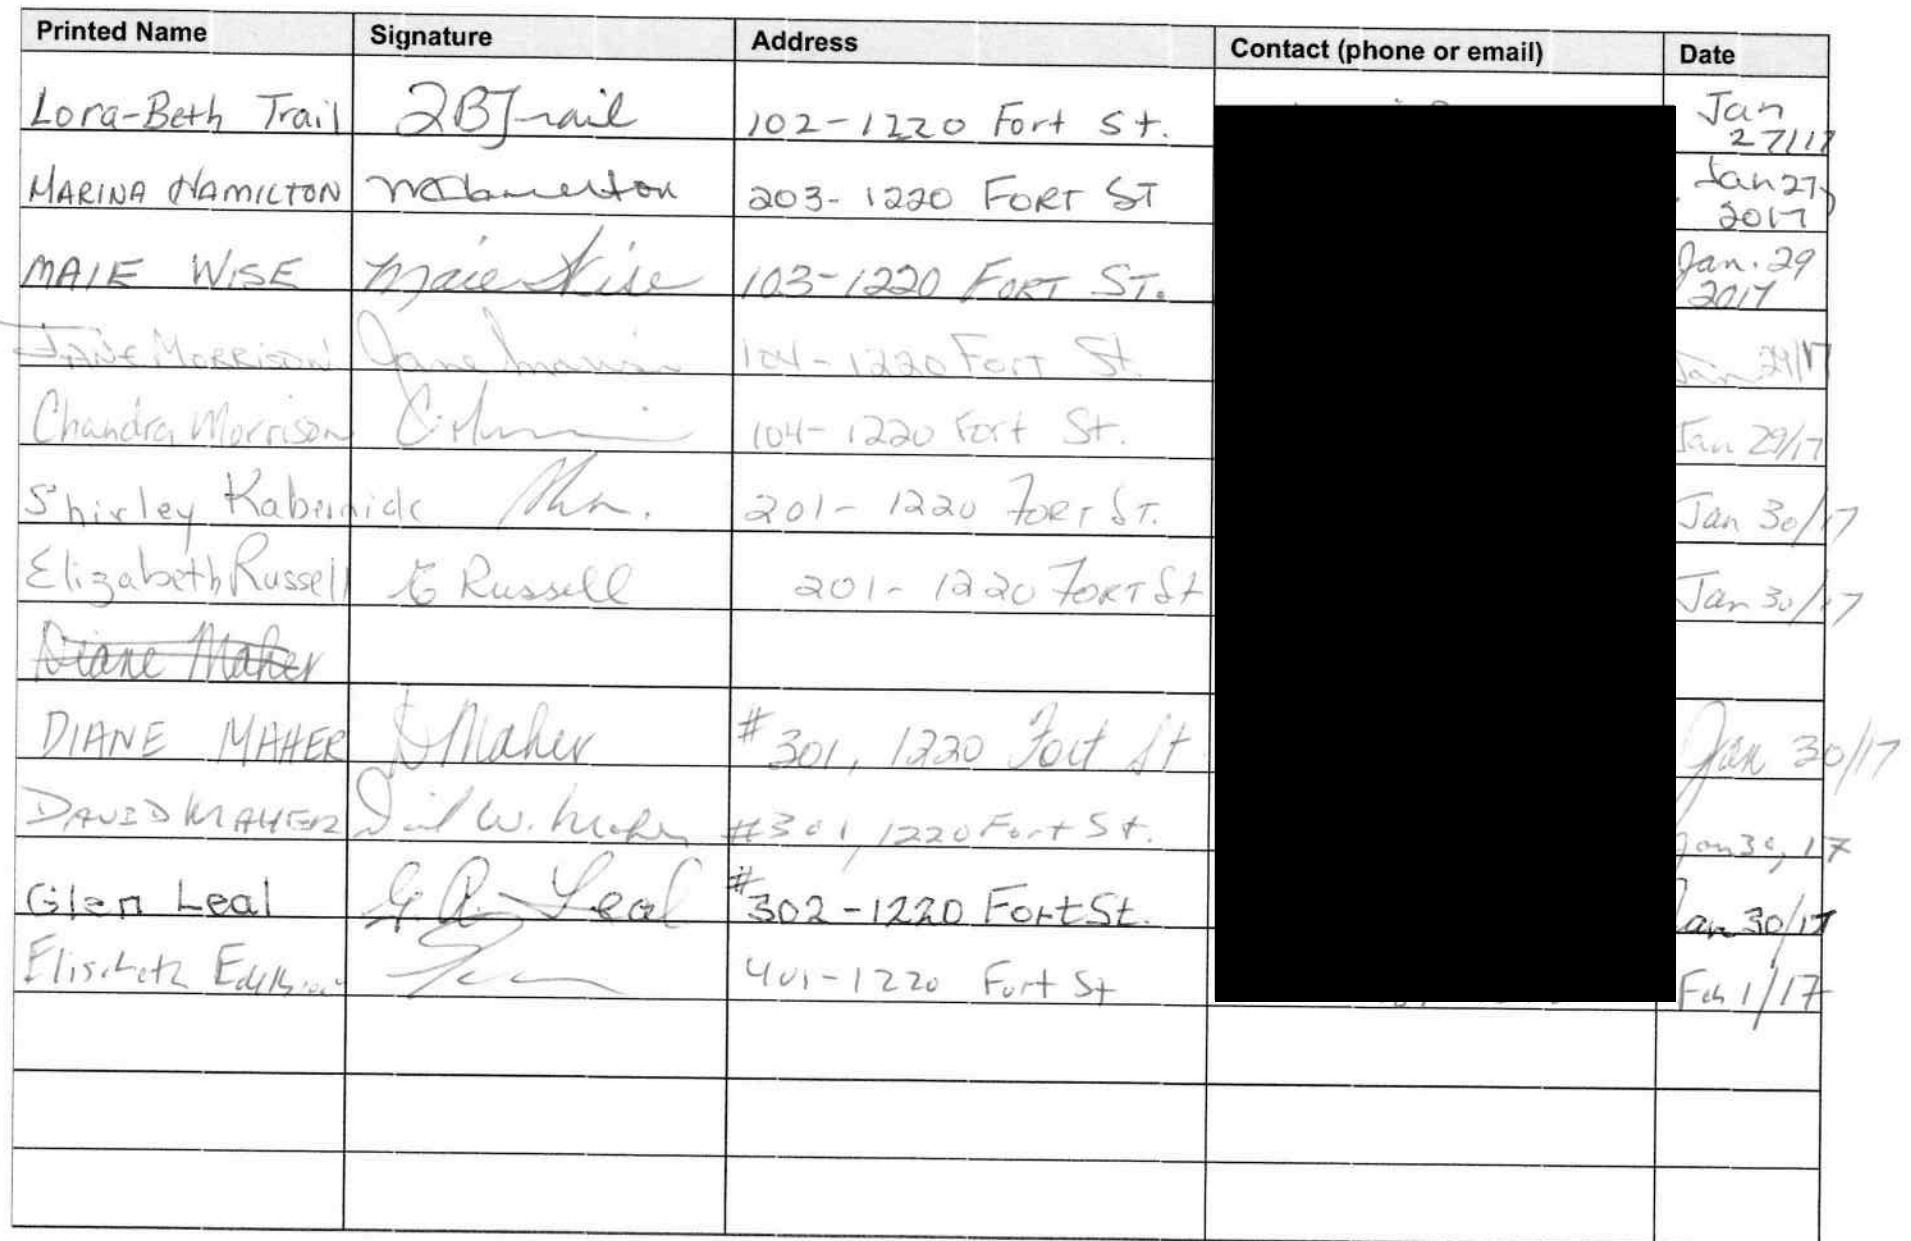 Printed Name Signature Address Contact (phone or email) Date
Lora-Beth Trail LBTrail 102-1220 Fort St. Jan 27/17
MARINA HAMILTON MHamilton 203-1220 FORT ST Jan 27, 2017
MAIE WISE Maie Wise 103-1220 FORT ST. Jan. 29 2017
JANE MORRISON Jane Morrison 104-1220 Fort St Jan 29/17
Chandra Morrison 104-1220 Fort St. Jan 29/17
Shirley 201-1220 FORT ST. Jan 30/17
Elizabeth Russell E Russell 201-1220 FORT St Jan 30/17
Diane Maher
DIANE MAHER D Maher #301, 1220 Fort St Jan 30/17
DAVID MAHER David W. Maher #301, 1220 Fort St. Jan 30, 17
Glen Leal G. A. Leal #302-1220 Fort St. Jan 30/17
401-1220 Fort St Feb 1/17